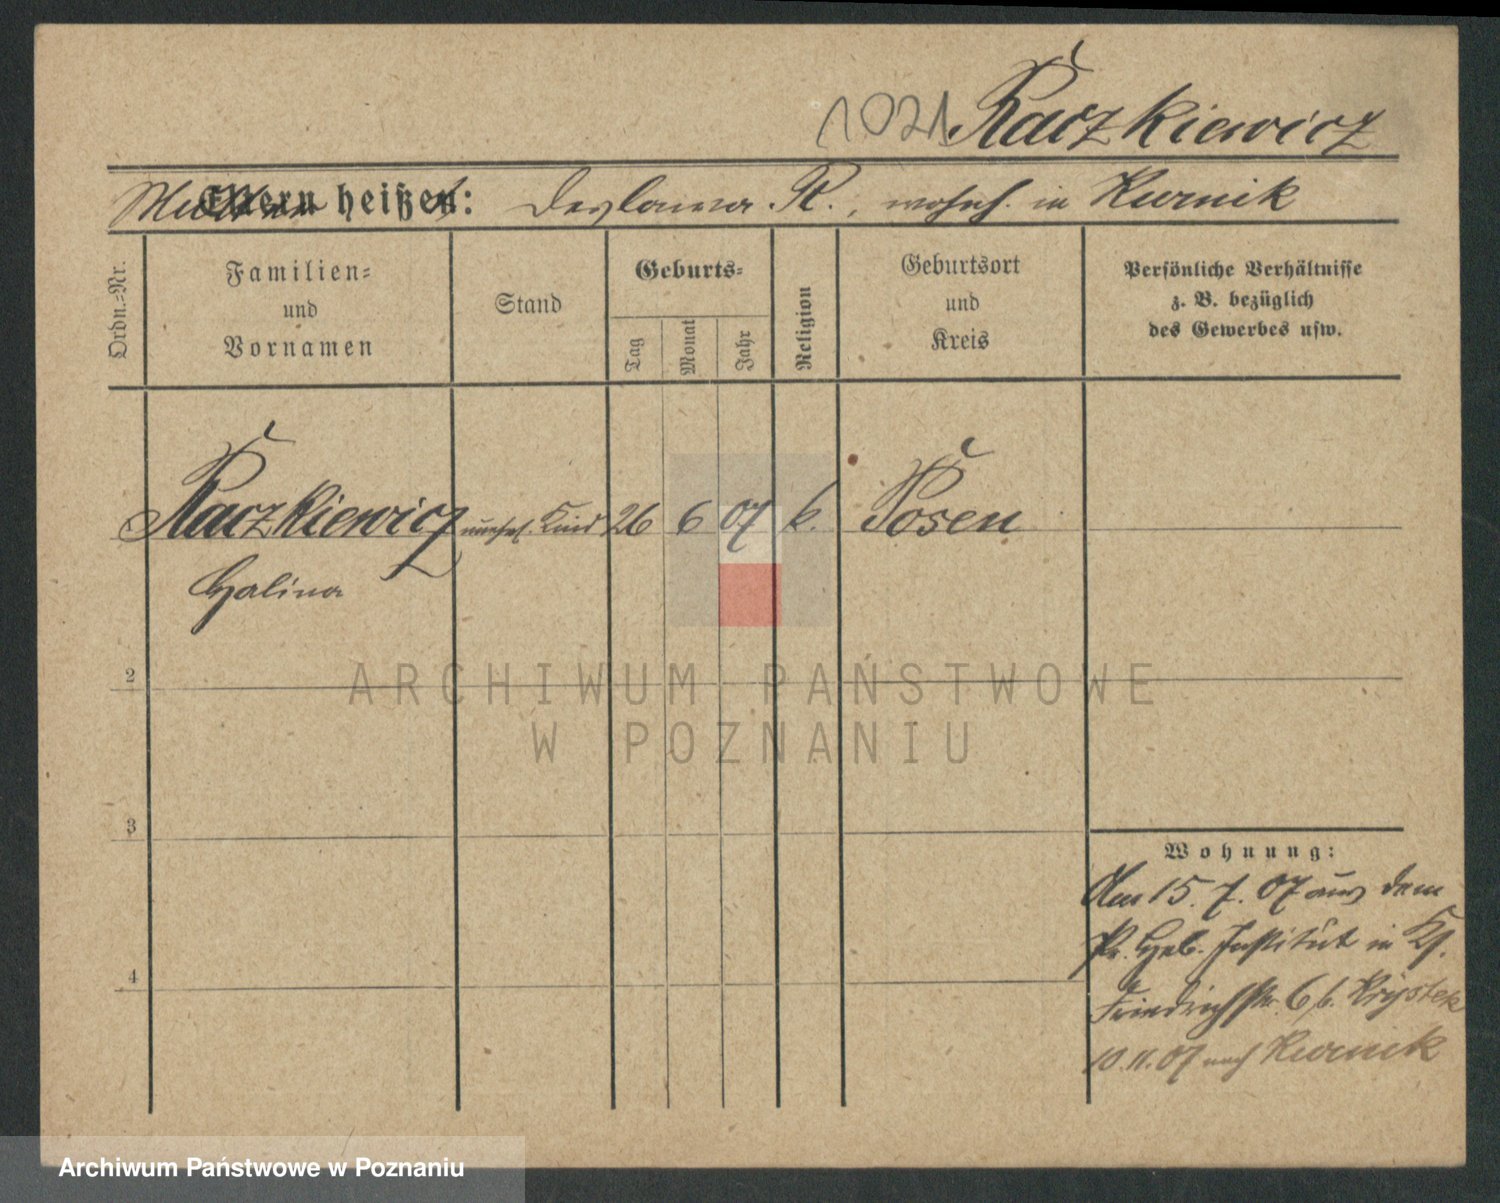 1021 Raczkiewicz
Mutter heißt: Deslawa R., wohnh. in Kurnik
Ordn.-Nr.
Familien-
und
Vornamen
Stand
Geburts-
Tag
Monat
Jahr
Religion
Geburtsort
und
Kreis
Persönliche Verhältnisse
z. B. bezüglich
des Gewerbes usw.
Raczkiewicz unehel. Kind 26 6 07 k. Posen
Halina
2
3
4
Wohnung:
Am 15. 7. 07 aus dem
Pr. Heb. Institut in
Friedrichstr. 6 b. Krystek
10. 11. 07 nach Kurnik
ARCHIWUM PAŃSTWOWE
W POZNANIU
Archiwum Państwowe w Poznaniu